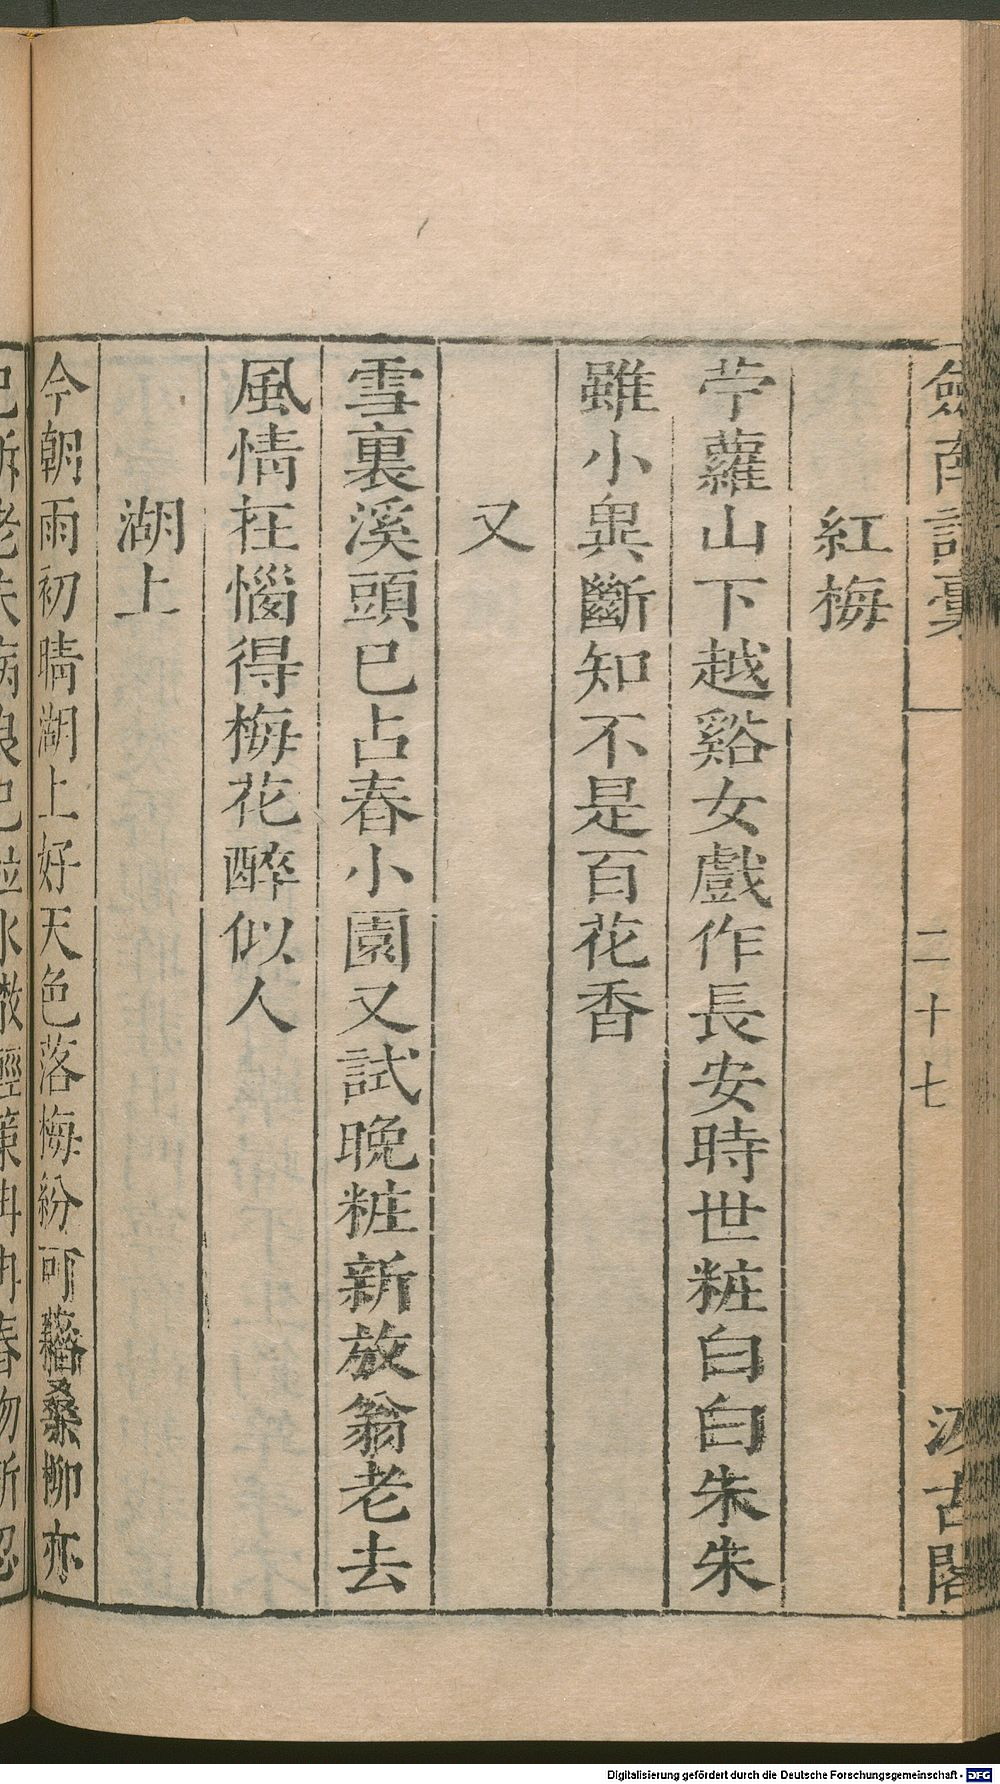 劍南詩稾
二十七
汲古閣
紅梅
苧蘿山下越谿女戲作長安時世粧白白朱朱
雖小異斷知不是百花香
又
雪裏溪頭已占春小園又試晚粧新放翁老去
風情在惱得梅花醉似人
湖上
今朝雨初晴湖上好天色落梅紛可藉桑柳亦
Digitalisierung gefördert durch die Deutsche Forschungsgemeinschaft - DFG